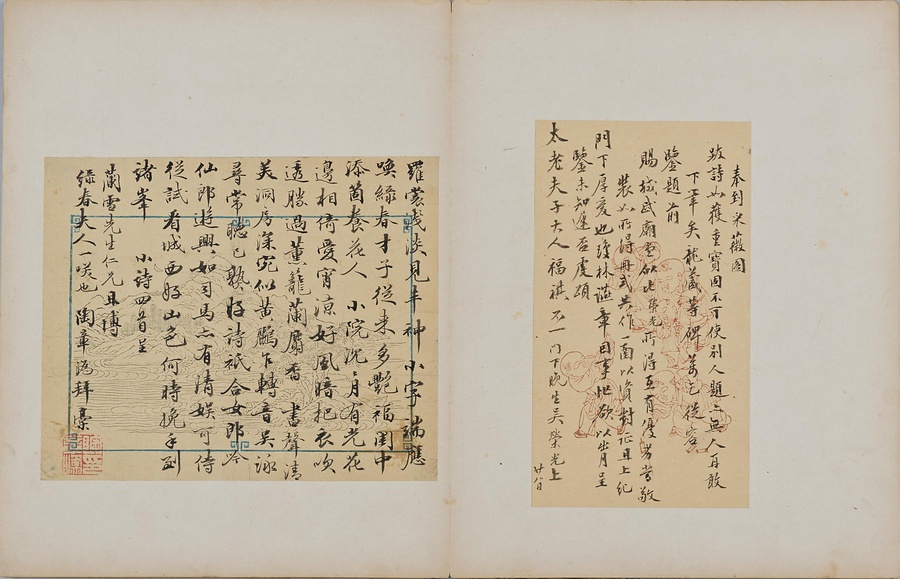 奉到采薇圖
跋詩如獲重寶因不可使別人題亦無人再敢
下筆矣龍藏等碑萬乞從容
鑒題前
賜城武廟堂欲以榮光所得互有優劣當敬
裝如所得冊式共作一函以資對証且上紀
門下厚愛也瓊林謹章因事世欲以出月呈
鑒未知遲否虔頌
太老夫子大人福祺不一門下晚生吳榮光上
廿八日
羅裳淺淡見丰神小字瑞應
喚綠春才子從來多艷福閨中
添箇養花人 小院沈沈月有光花
邊相倚愛宵涼好風暗把衣吹
透勝過薰籠蘭麝香 書聲清
美洞房深宛似黃鸝乍轉音吳詠
尋常聽已熟好詩祇合女郎吟
仙郎遊興如司馬亦有清娛可侍
從試看城西好山色何時挽手到
諸峯 小詩四首呈
蘭雪先生仁兄且博
綠春夫人一咲也 陶章溈拜稾